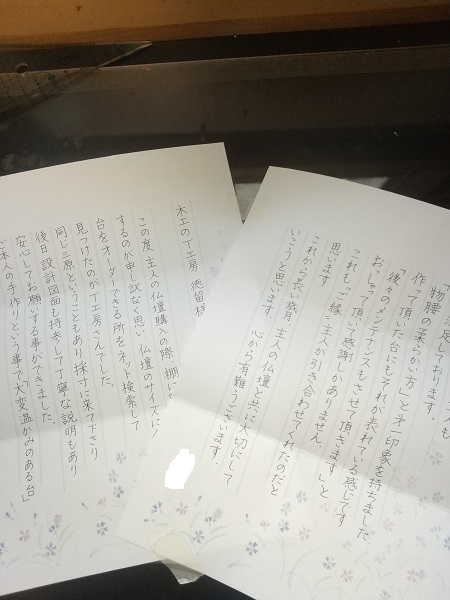 木工のT工房 徳留様
この度、主人の仏壇購入の際、棚に
するのが申し訳なく思い、仏壇のサイズに
台をオーダーできる所をネット検索して
見つけたのがT工房さんでした。
同じ三原ということもあり採寸に来て下さり
後日、設計図面も持参して丁寧な説明もあり
安心してお願いする事ができました。
ご本人の手作りという事で「大変温かみのある台」
満足しております。
物腰の柔らかい方」と第一印象を持ちました
作って頂いた台にもそれが表れている感じです
「後々のメンテナンスもさせて頂きます」と
おっしゃって頂いて感謝しかありません
これも、ご縁…主人が引き合わせてくれたのだと
思います
これから長い歳月、主人の仏壇と共に大切にして
いこうと思います。 心から有難うございます.